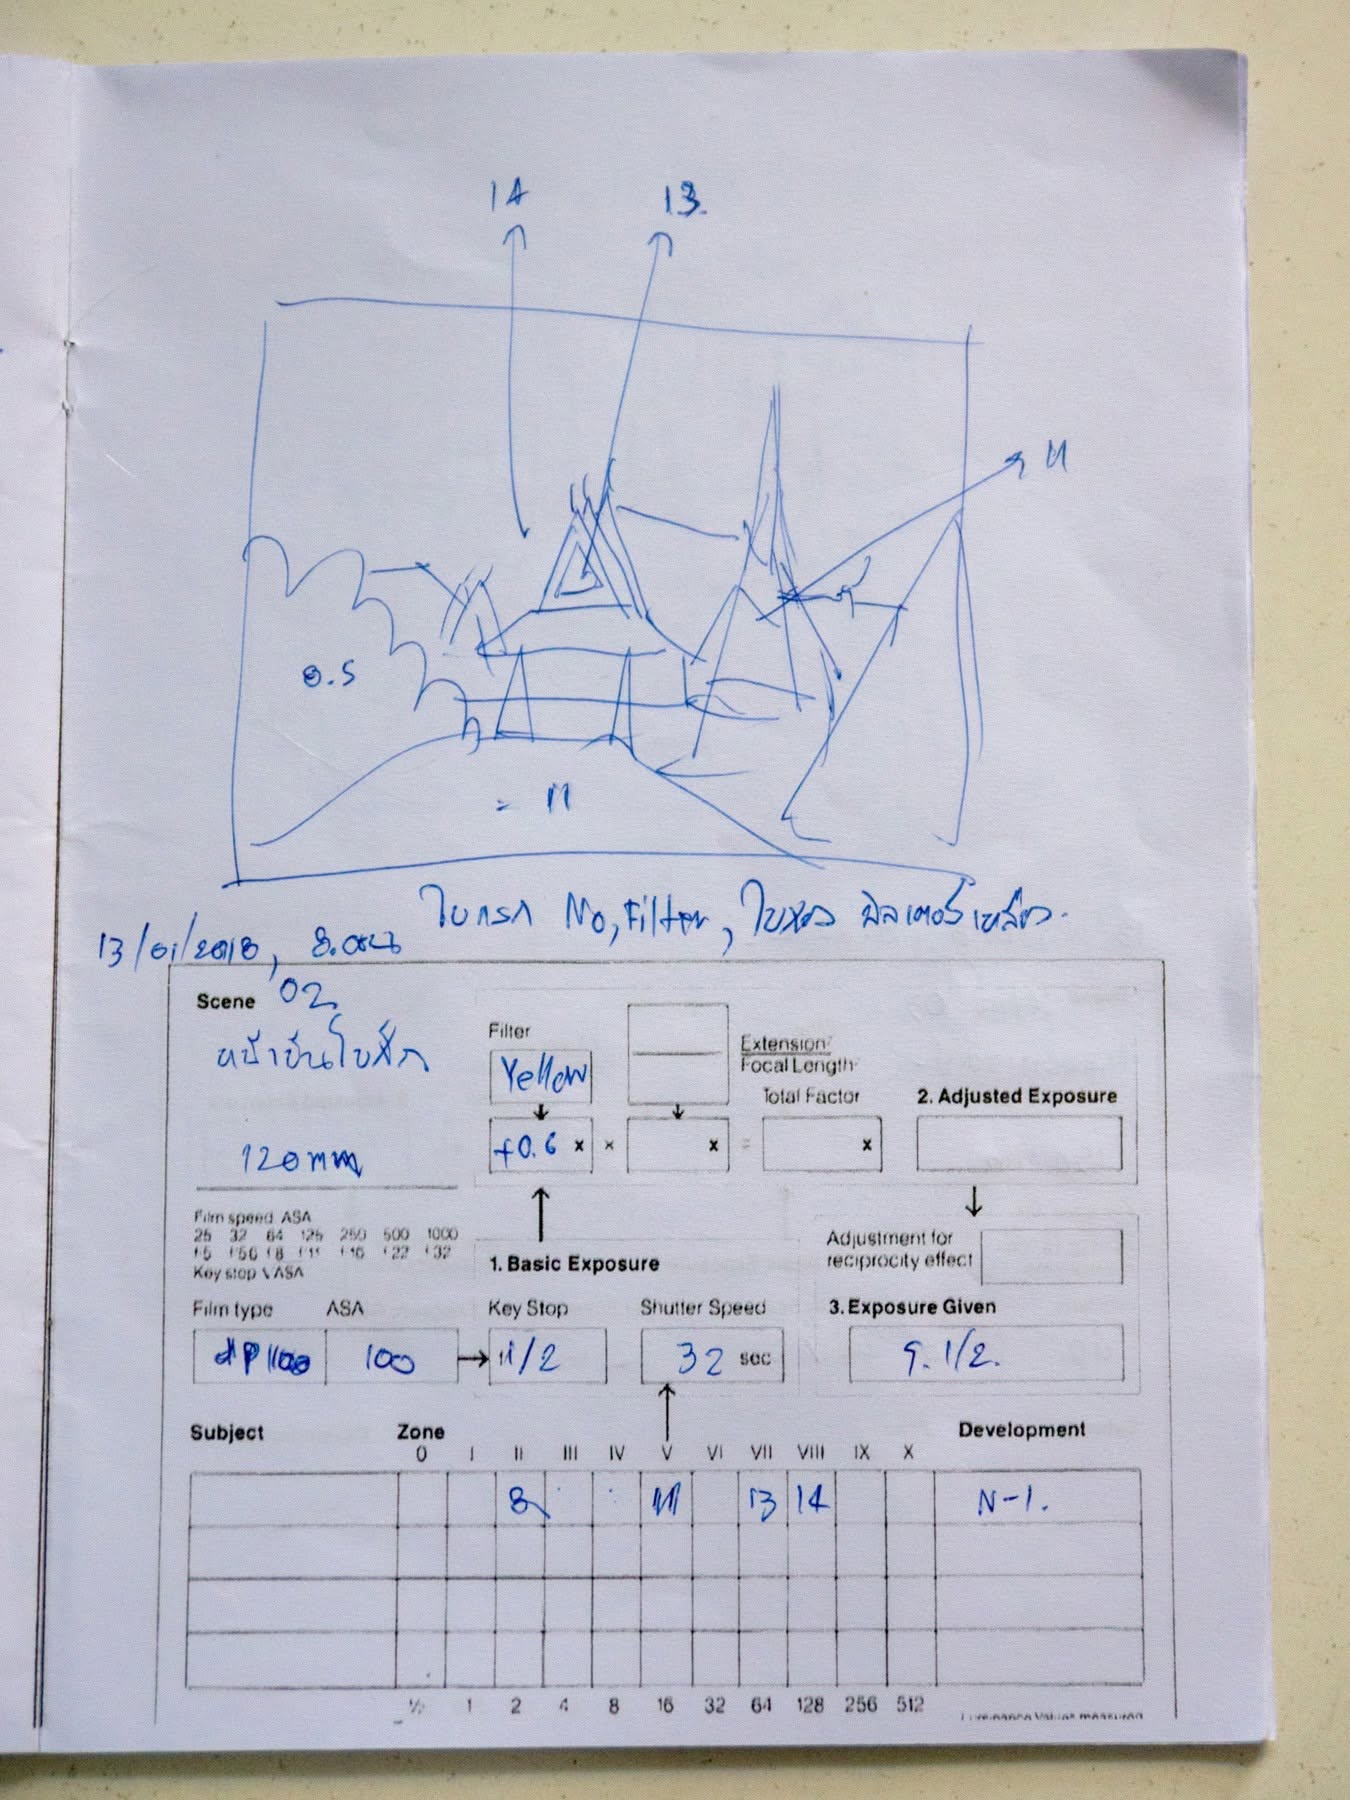 14 13.
11
0.5
= 11
ใบแรก No, Filter, ใบสอง ฟิลเตอร์เหลือง.
13/01/2018, 8.00น
Scene 02
หน้าบันโบสถ์
Filter
Yellow
Extension²
Focal Length²
120mm
Total Factor
2. Adjusted Exposure
+0.6 x x x = x
Film speed ASA
25 32 64 125 250 500 1000
f5 f56 f8 f11 f16 f22 f32
Key stop √ASA
Adjustment for
reciprocity effect
1. Basic Exposure
Film type ASA Key Stop Shutter Speed 3. Exposure Given
100 11/2 32 sec 9. 1/2.
Subject Zone Development
0 I II III IV V VI VII VIII IX X
8 11 13 14 N-1.
½ 1 2 4 8 16 32 64 128 256 512
Luminance Values measured